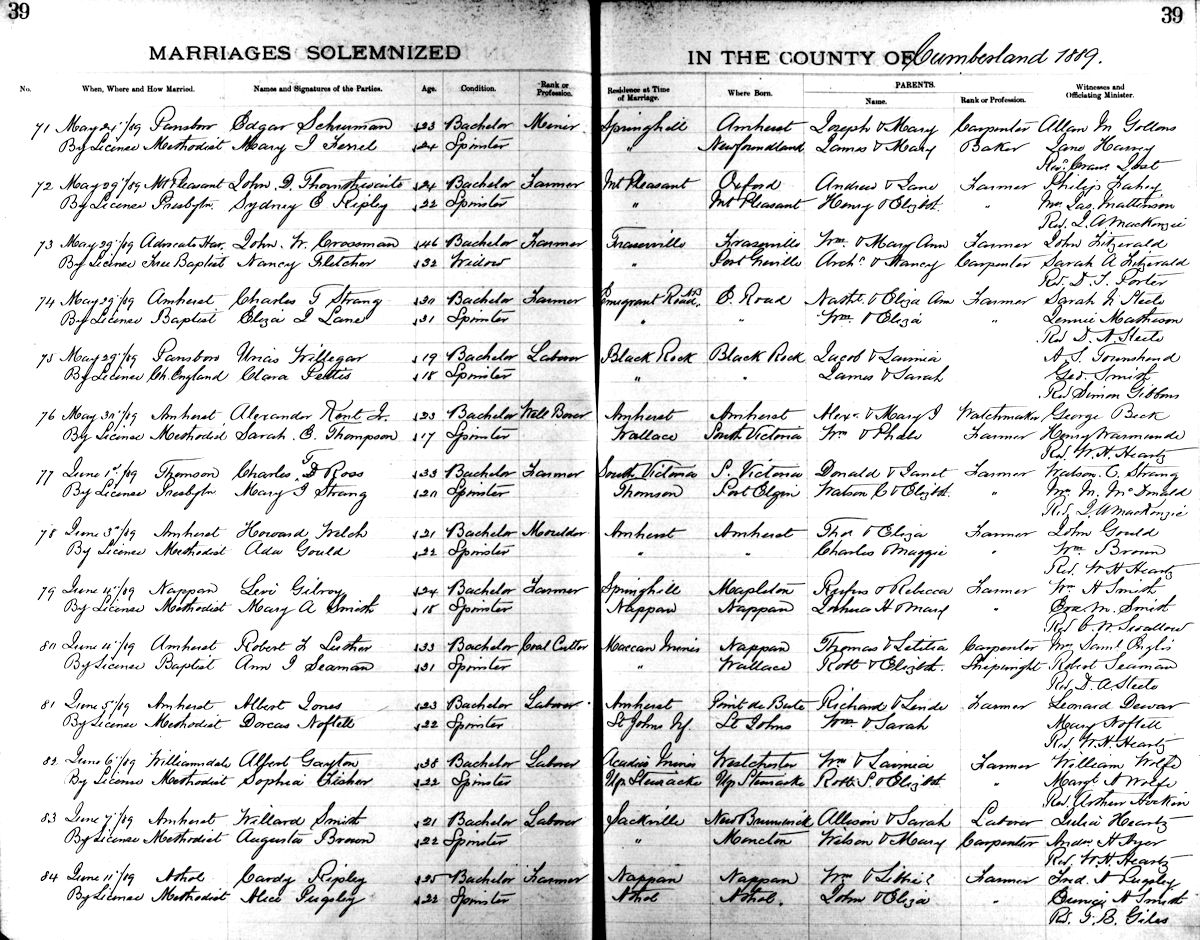 39 39
MARRIAGES SOLEMNIZED IN THE COUNTY OF Cumberland 1889.
No. When, Where and How Married. Names and Signatures of the Parties. Age. Condition. Rank or Profession. Residence at Time of Marriage. Where Born. PARENTS. Name. Rank or Profession. Witnesses and Officiating Minister.
71 May 27"/89 Edgar Schurman 23 Bachelor Springhill Amherst Joseph & Mary Carpenter Allan M
By License Methodist Mary J 24 Spinster " Newfoundland James & Mary Baker Jane Harvey
72 May 29"/89 Mt Pleasant John D. Thornthwaite 24 Bachelor Farmer Mt Pleasant Oxford Andrew & Jane Farmer Philip Fahey
By License Presbytn. Sydney E Ripley 22 Spinster " Mt Pleasant Henry & Elizbt. " Mrs Jas. Mattinson
Rev. J. A MacKenzie
73 May 29"/89 Advocate Har. John. W. Crossman 46 Bachelor Farmer Fraserville Fraserville Wm. & Mary Ann Farmer John Fitzerald
By License Free Baptist Nancy Fletcher 32 Widow " Port Greville Archd. & Nancy Carpenter Sarah A Fitzerald
Rev D. T. Porter
74 May 29"/89 Amherst Charles T Strang 30 Bachelor Farmer Emegrant Road, NB E. Road Nathl. & Eliza Ann Farmer Sarah N Steele
By License Baptist Eliza J Lane 31 Spinster " " Wm. & Eliza " Jennie Matheson
Rev D. A Steele
75 May 29"/89 Parrsboro Urias Willegar 19 Bachelor Laborer Black Rock Black Rock Jacob & Lavinia A. S. Townshend
By License Ch. England Clara Pettis 18 Spinster " " James & Sarah Geo. Smith
Rev Simon Gibbons
76 May 30"/89 Amherst Alexander Kent Jr. 23 Bachelor Well Borer Amherst Amherst Alexr. & Mary J Watchmaker George Beck
By License Methodist Sarah. E. Thompson 17 Spinster Wallace South Victoria Wm & Farmer Henry
Rev. W. H. Heartz
77 June 1st/89 Thomson Charles. T. D Ross 33 Bachelor Farmer South Victoria S. Victoria Donald & Janet Farmer Watson. C. Strang
By License Presbytn Mary J Strang 20 Spinster Thomson Port Elgin Watson C & Elizbt. " Mrs M. McDonald
Rev. J. A MacKenzie
78 June 3rd/89 Amherst Howard Welch 21 Bachelor Moulder Amherst Amherst Thos & Eliza Farmer John Gould
By License Methodist Ada Gould 22 Spinster " " Charles & Maggie " Wm. Brown
Rev. W. H. Heartz
79 June 4"/89 Nappan Levi Gilroy 24 Bachelor Farmer Springhill Mapleton Rufus & Rebecca Farmer Wm. H Smith
By License Methodist Mary A Smith 18 Spinster Nappan Nappan Joshua H & Mary " M. Smith
Rev C. W. Swallow
80 June 4"/89 Amherst Robert L Lusher 33 Bachelor Coal Cutter Maccan Mines Nappan Thomas & Letitia Carpenter Mrs Saml.
By License Baptist Ann J Seaman 31 Spinster " Wallace Robt & Elizbt. Shipwright Robert Seaman
Rev. D. A. Steele
81 June 5"/89 Amherst Albert Jones 23 Bachelor Laborer Amherst Point de Bute Richard & Linda Farmer Leonard Dewar
By License Methodist Dorcas Noftell 22 Spinster St Johns Nf. St Johns Wm. & Sarah Mary Noftell
Rev. W. H. Heartz
82 June 6"/89 Williamsdale Alfred Gayton 38 Bachelor Laborer Acadia Mines Westchester Wm & Lavinia Farmer William Wolfe
By License Methodist Sophia Fisher 22 Spinster Up. Stewiacke Up. Stewiacke Robt. S. & Elizbt " Margt A Wolfe
Rev. Arthur Hockin
83 June 7"/89 Amherst Willard Smith 21 Bachelor Laborer Sackville New Brunswick Allison & Sarah Laborer Julia Heartz
By License Methodist Augusta Brown 22 Spinster " Moncton Wilson & Mary Carpenter Andw. H Ayer
Rev. W. H. Heartz
84 June 11"/89 Athol Cardy Ripley 25 Bachelor Farmer Nappan Nappan Wm & Farmer Fred. A Pugsley
By License Methodist Alice Pugsley 22 Spinster Athol Athol. John & Eliza " A Smith
Rev. J. B. Giles